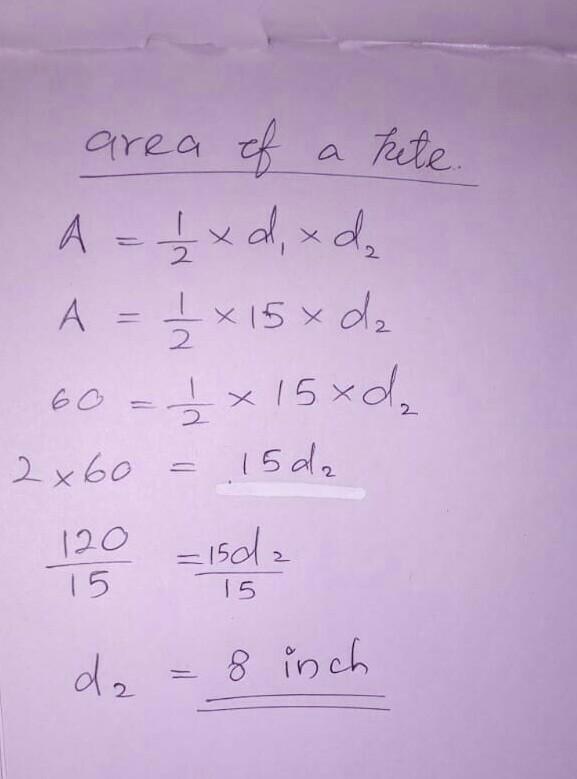 area of a kite.
A = 1/2 × d₁ × d₂
A = 1/2 × 15 × d₂
60 = 1/2 × 15 × d₂
2 × 60 = 15d₂
120/15 = 15d₂/15
d₂ = 8 inch